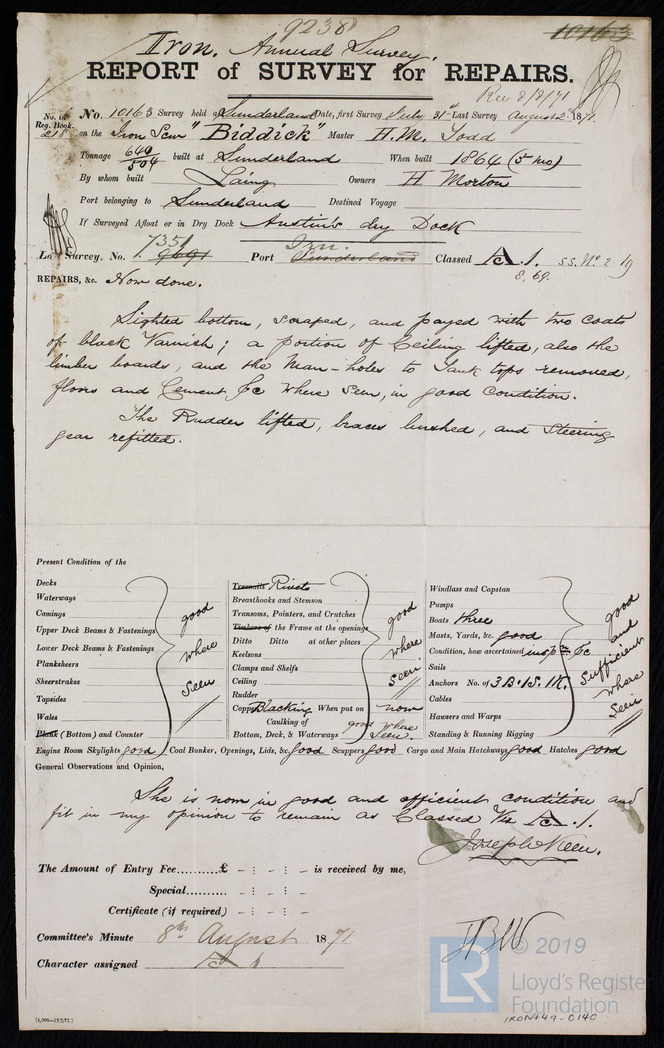 9238
10163
Iron. Annual Survey.
REPORT of SURVEY for REPAIRS.
Rec 8/8/71
No. in Reg. Book. 218
No. 10163 Survey held at Sunderland Date, first Survey July 31st Last Survey August 2 1871.
on the Iron Scw "Biddick" Master H. M. Todd
Tonnage 649/504 built at Sunderland When built 1864 (5 mo)
By whom built Laing Owners H Morton
Port belonging to Sunderland Destined Voyage
If Surveyed Afloat or in Dry Dock Austin's dry Dock
7351 Irn.
Last Survey. No. 9691 Port Sunderland Classed A.1. S.S. No. 2
8.69.
REPAIRS, &c. Now done.
Sighted bottom, scraped, and payed with two coats
of black Varnish; a portion of Ceiling lifted, also the
limber boards, and the Man-holes to Tank tops removed,
floors and Cement &c where seen, in good condition.
The Rudder lifted, braces bushed, and Steering
gear refitted.
Present Condition of the
Decks
Waterways
Comings
Upper Deck Beams & Fastenings
Lower Deck Beams & Fastenings
Planksheers
Sheerstrakes
Topsides
Wales
Plank (Bottom) and Counter
good where seen
Treenails Rivets
Breasthooks and Stemson
Transoms, Pointers, and Crutches
Timbers of the Frame at the openings
Ditto Ditto at other places
Keelsons
Clamps and Shelfs
Ceiling
Rudder
Copper Blacking When put on now
Caulking of
Bottom, Deck, & Waterways good where seen.
good where seen
Windlass and Capstan
Pumps
Boats three
Masts, Yards, &c. good
Condition, how ascertained inspn &c
Sails
Anchors No. of 3 B. 1 S. 1 K.
Cables
Hawsers and Warps
Standing & Running Rigging
good and sufficient where seen
Engine Room Skylights good Coal Bunker, Openings, Lids, &c. good Scuppers good Cargo and Main Hatchways good Hatches good
General Observations and Opinion,
She is now in good and efficient condition and
fit in my opinion to remain as Classed A.1.
Joseph Keen.
The Amount of Entry Fee..........£ - : - : - is received by me,
Special.......... - : - : -
Certificate (if required) - : - : -
Committee's Minute 8th August 1871
Character assigned A 1
© 2019
LR
Lloyd's Register
Foundation
IRON449-0140